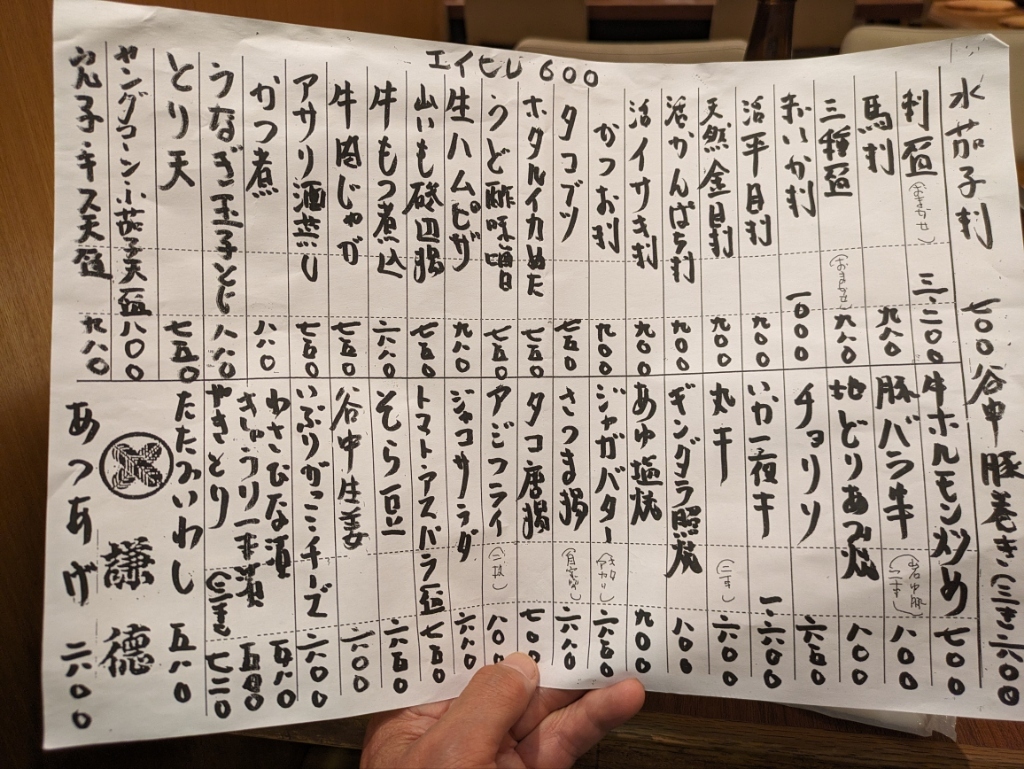 エイヒレ 600
水茄子刺 七〇〇
刺盛(おまかせ) 三.二〇〇
馬刺 九八〇
三種盛(おまかせ) 九八〇
赤いか刺 一〇〇〇
活平目刺 九〇〇
天然金目刺 九〇〇
活かんぱち刺 九〇〇
活イサキ刺 九〇〇
かつお刺 九〇〇
タコブツ 七五〇
ホタルイカぬた 七五〇
うど酢味噌 七五〇
生ハムピザ 九八〇
山いも磯辺揚 七五〇
牛もつ煮込 六八〇
牛肉じゃが 七五〇
アサリ酒蒸し 七五〇
かつ煮 八八〇
うなぎ玉子とじ
とり天 七五〇
ヤングコーン小茄子天盛 八〇〇
穴子キス天盛 九八〇
谷中豚巻き(三本)
牛ホルモン炒め 七〇〇
豚バラ牛 八〇〇
地どりあみ焼 八〇〇
チョリソ 六五〇
いか一夜干
丸干(三本) 六〇〇
ギンダラ照焼 八〇〇
あゆ塩焼 九〇〇
ジャガバター
さつま揚(自家製) 六八〇
タコ唐揚 七〇〇
アジフライ(二枚) 八〇〇
ジャコサラダ 六八〇
トマトアスパラ盛 七五〇
そら豆 六五〇
谷中生姜 六〇〇
いぶりがっこチーズ 六〇〇
わさびな漬 五八〇
きゅうり一本漬 五〇〇
やきとり 七二〇
たたみいわし 五八〇
謙徳
あつあげ 六八〇